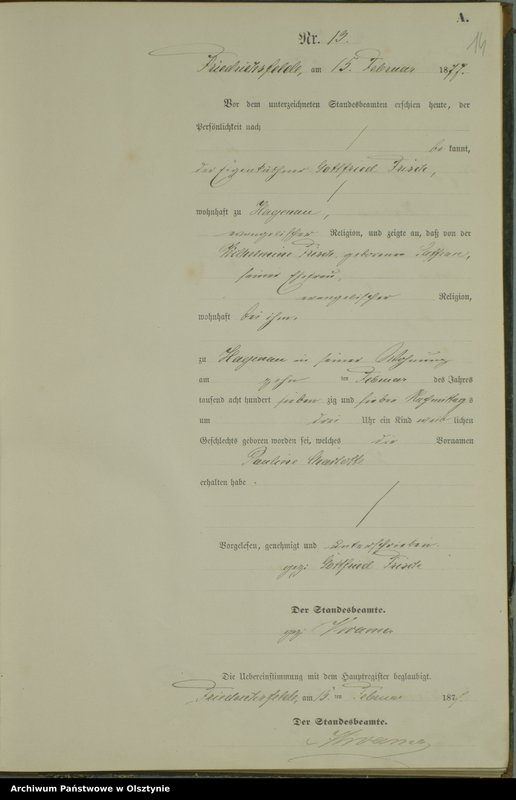 A.
14
Nr. 13.
Friedrichsfelde, am 15. Februar 1877.
Vor dem unterzeichneten Standesbeamten erschien heute, der
Persönlichkeit nach
be kannt,
der Eigenkäthner Gottfried
wohnhaft zu Hagenau,
evangelischer Religion, und zeigte an, daß von der
Wilhelmine geborenen
seiner Ehefrau,
evangelischer Religion,
wohnhaft bei ihm,
zu Hagenau in seiner Wohnung
am zehn ten Februar des Jahres
tausend acht hundert sieben zig und sieben Nachmittag s
um drei Uhr ein Kind weib lichen
Geschlechts geboren worden sei, welches die Vornamen
Pauline Charlotte
erhalten habe.
Vorgelesen, genehmigt und unterschrieben.
gez: Gottfried
Der Standesbeamte.
gez:
Die Uebereinstimmung mit dem Hauptregister beglaubigt.
Friedrichsfelde, am 15 ten Februar 1877.
Der Standesbeamte.
Archiwum Państwowe w Olsztynie